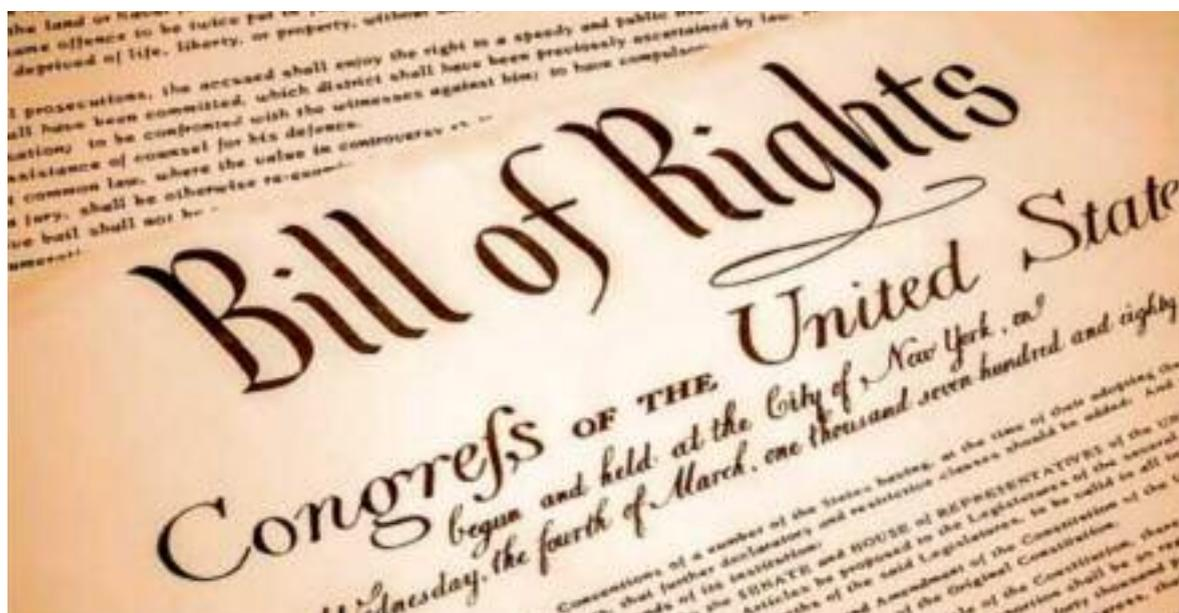 the land or
same offence to be twice put
deprived of life, liberty, or property, without
prosecutions, the accused shall enjoy the right to a speedy and public
shall have been committed, which district shall have been previously ascertained by law,
to be confronted with the witnesses against him; to have
assistance of counsel for his defence.
common law, where the value in controversy
jury, shall be otherwise
bail shall not be
Bill of Rights
Congreſs OF THE United State
begun and held at the City of New York, on
Wednesday, the fourth of March, one thousand seven hundred and eighty
Conventions of a number of the States having, at the time of their adopting the
that further declaratory and restrictive clauses should be added: And
of its institution:
the SENATE and HOUSE of REPRESENTATIVES of the
Articles be proposed to the Legislatures of the several
of the said Legislatures, to be valid to all
and Amendment of the Constitution of the
the Original Constitution.
of the Constitution, there